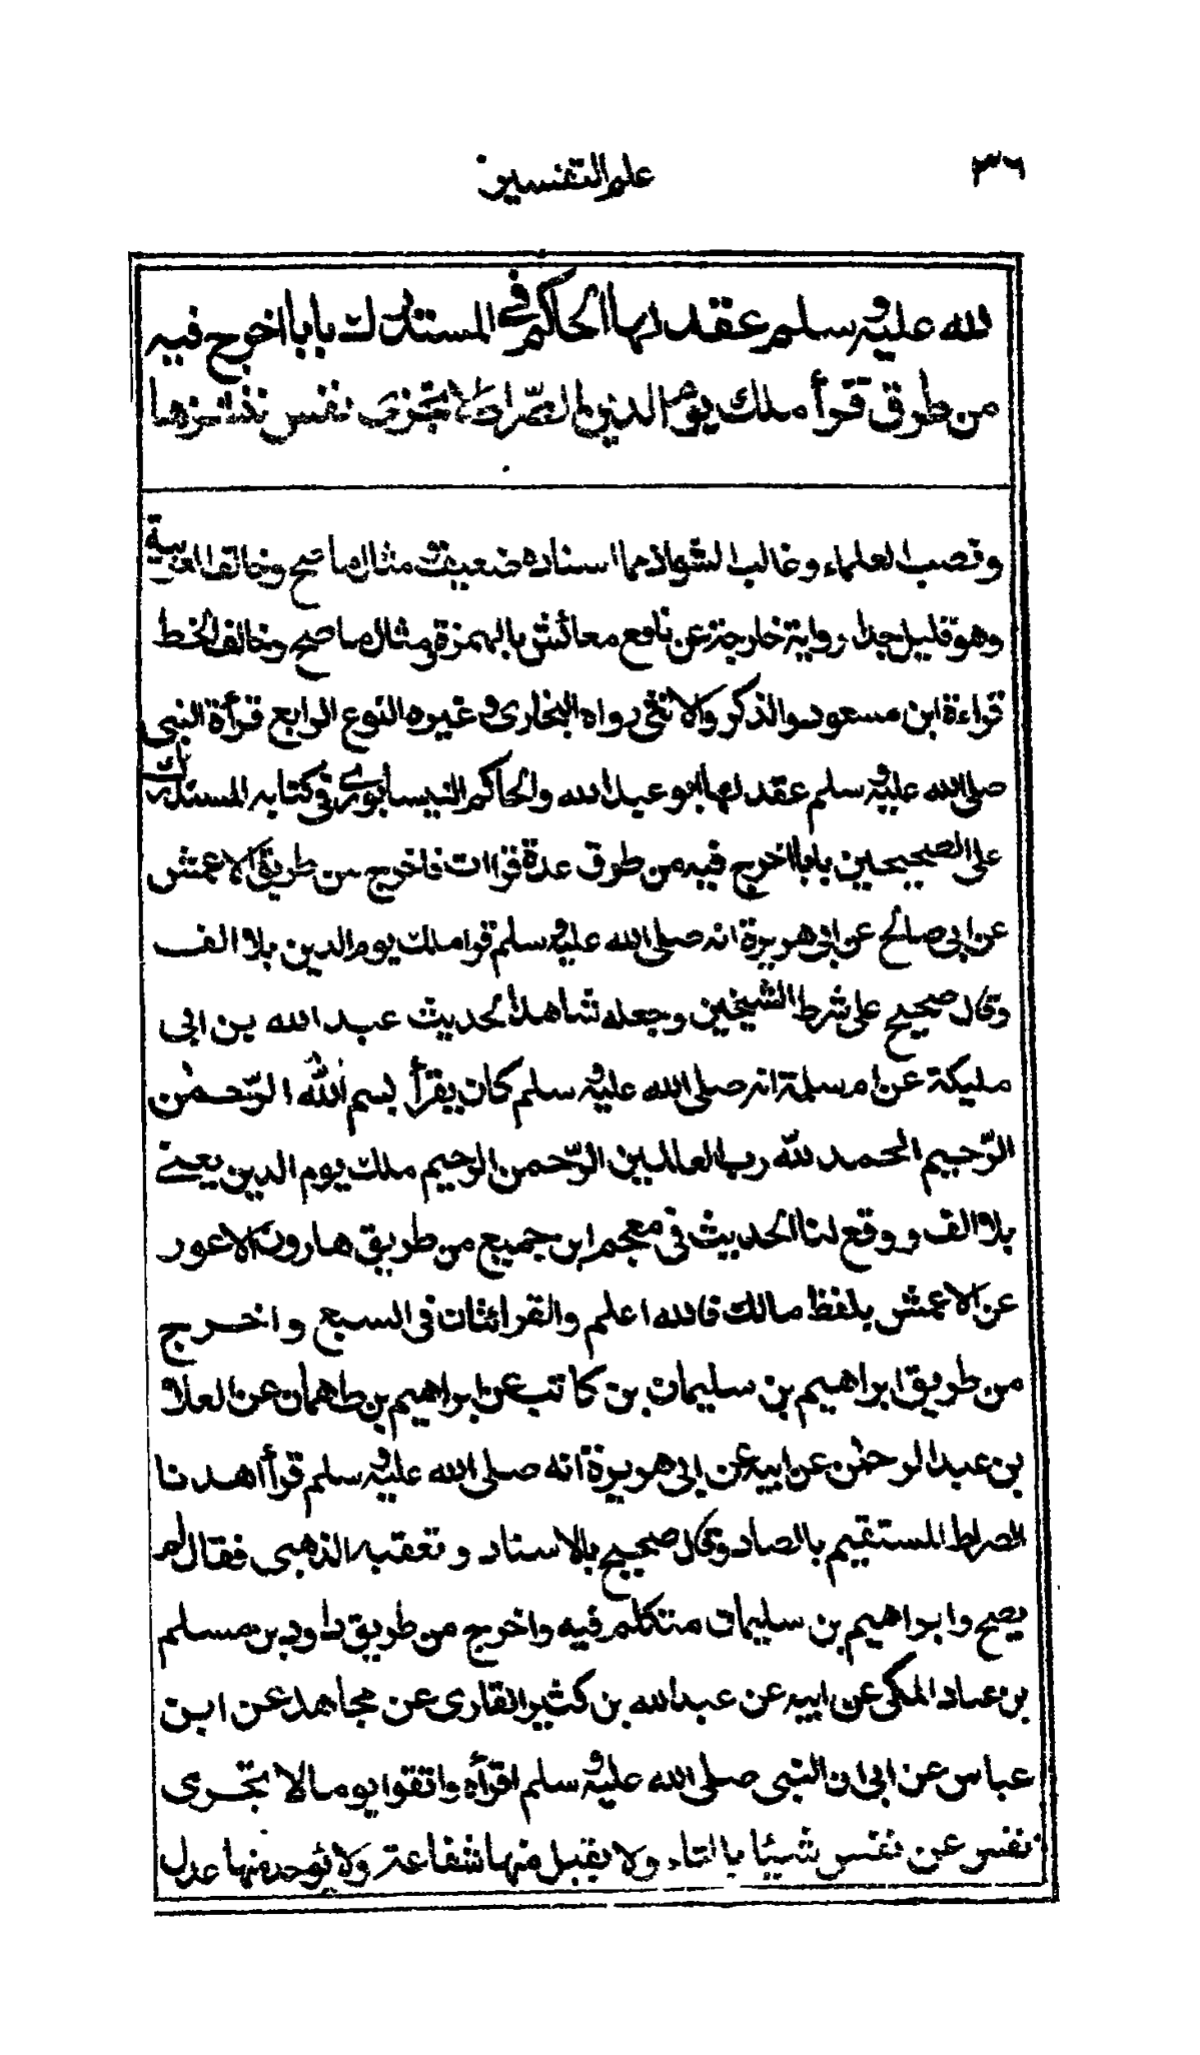 ٣٦ علم التفسير
لله عليه وسلم عقد لها الحاكم في المستدرك بابا اخرج فيه
من طرق قرأ ملك يوم الدين الصراط لا تجزى نفس ننشزها
ونصب العلماء وغالب الشواذ مما اسناده ضعيف مثال ما صح وخالف العربية
وهو قليل جدا رواية خارجة عن نافع معائش بالهمزة ومثال ما صح وخالف الخط
قراءة ابن مسعود والذكر والانثى رواه البخارى وغيره النوع الرابع قرأة النبى
صلى الله عليه وسلم عقد لها ابو عبد الله والحاكم النيسابورى فى كتابه المستدرك
على الصحيحين بابا اخرج فيه من طرق عدة قراات فاخرج من طريق الاعمش
عن ابى صالح عن ابى هريرة انه صلى الله عليه وسلم قرا ملك يوم الدين بلا الف
وقال صحيح على شرط الشيخين وجعله شاهدا لحديث عبد الله بن ابى
مليكة عن ام سلمة انه صلى الله عليه وسلم كان يقرأ بسم الله الرّحمٰن
الرّحيم الحمد للّه رب العالمين الرّحمن الرحيم ملك يوم الدين يعنے
بلا الف ووقع لنا الحديث فى معجم ابن جميع من طريق هارون الاعور
عن الاعمش بلفظ مالك فالله اعلم والقرائتان فى السبع واخرج
من طريق ابراهيم بن سليمان بن كاتب عن ابراهيم بن طهمان عن العلا
بن عبد الرحمٰن عن ابيه عن ابى هريرة انه صلى الله عليه وسلم قرأ اهدنا
الصراط المستقيم بالصاد وقال صحيح بالاسناد وتعقبه الذهبى فقال لم
يصح وابراهيم بن سليمان متكلم فيه واخرج من طريق داود بن مسلم
بن عباد المكى عن ابيه عن عبد الله بن كثير القارى عن مجاهد عن ابن
عباس عن ابى ان النبى صلى الله عليه وسلم اقرأه واتقوا يوما لا تجزى
نفس عن نفس شيئا بالتاء ولا يقبل منها شفاعة ولا يؤخذ منها عدل